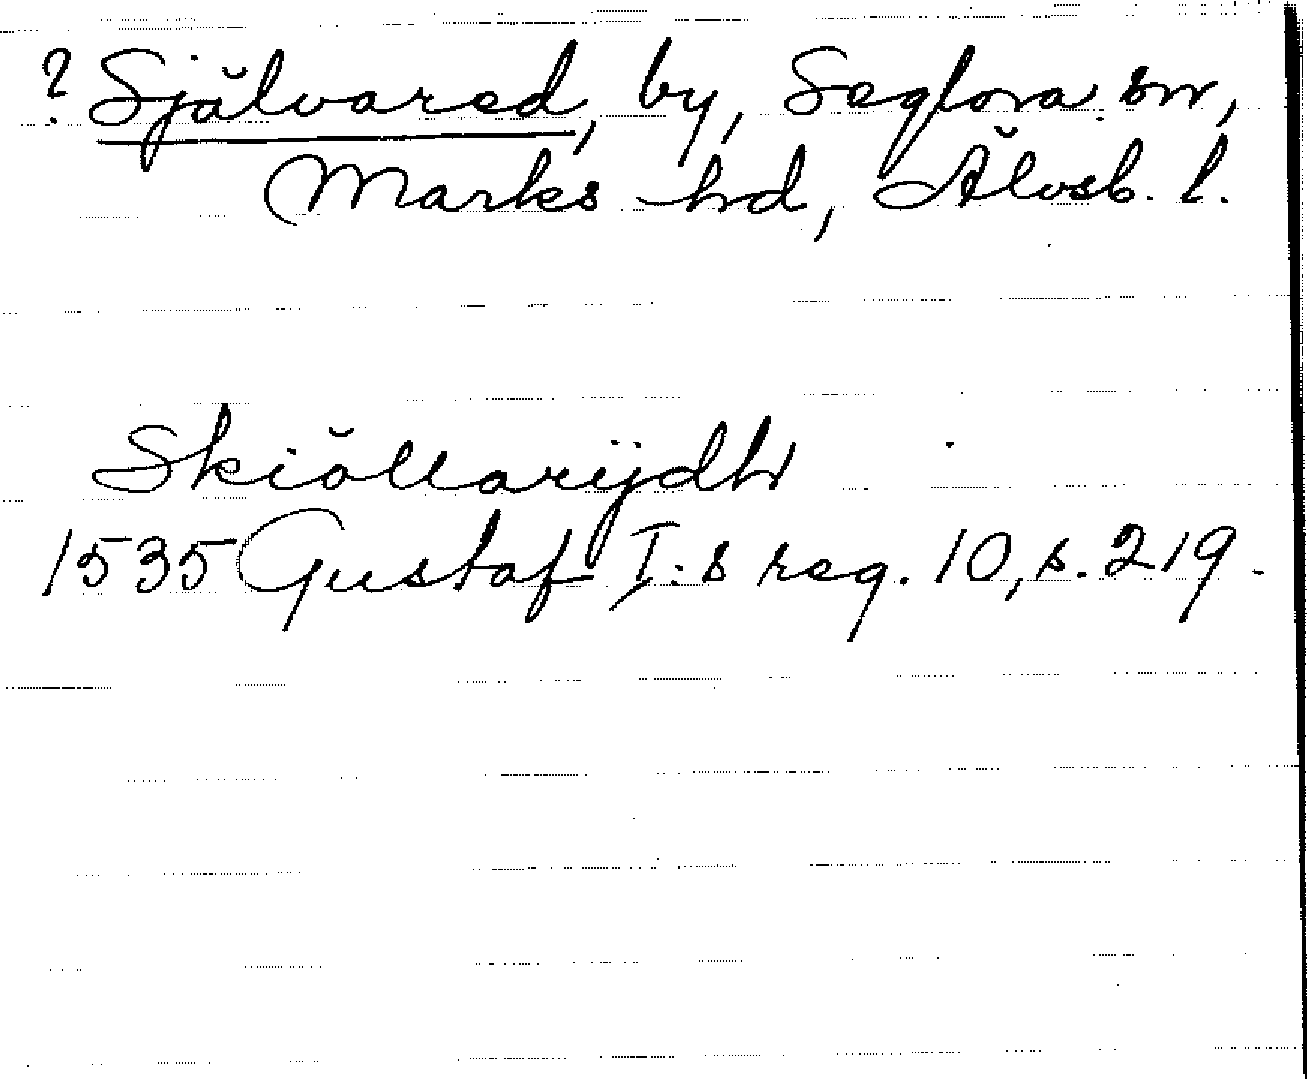 ? Självared, by, Seglora sn,
Marks hd, Älvsb. l.
Skiöllarÿdh
1535 Gustaf I:s reg. 10, s. 219.